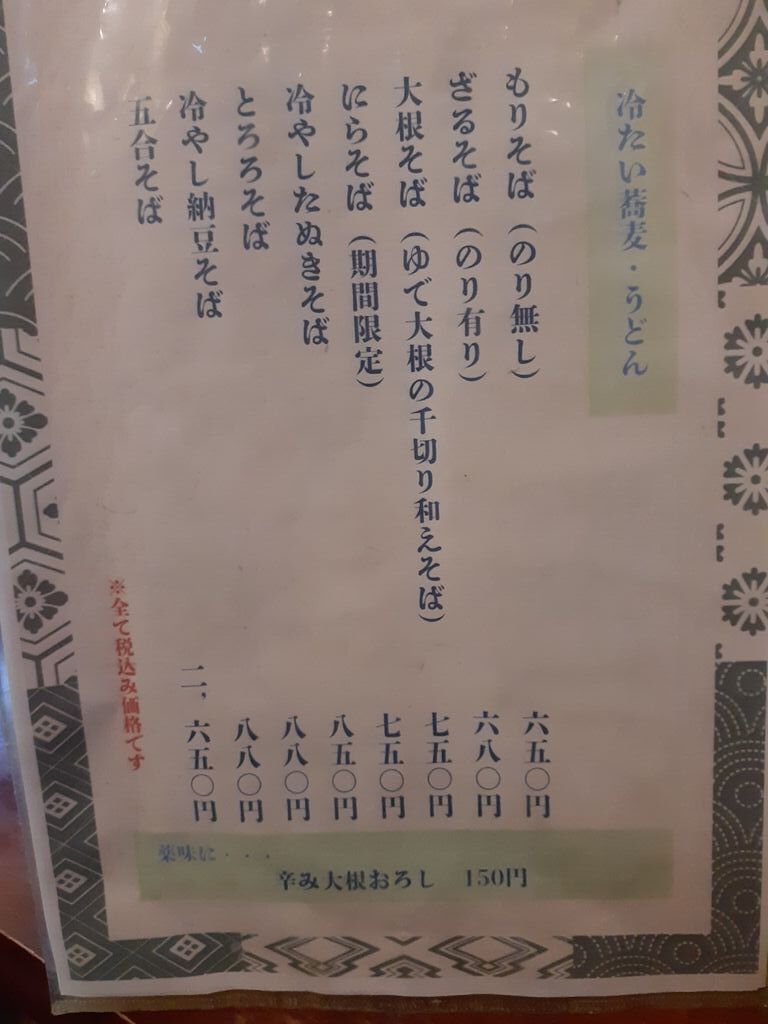 冷たい蕎麦・うどん
もりそば（のり無し） 六五〇円
ざるそば（のり有り） 六八〇円
大根そば（ゆで大根の千切り和えそば） 七五〇円
にらそば（期間限定） 七五〇円
冷やしたぬきそば 八五〇円
とろろそば 八八〇円
冷やし納豆そば 八八〇円
五合そば 二、六五〇円
※全て税込み価格です
薬味に・・・
辛み大根おろし 150円